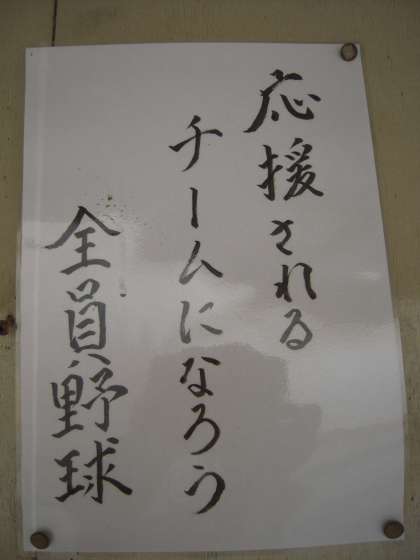 応援される
チームになろう
全員野球